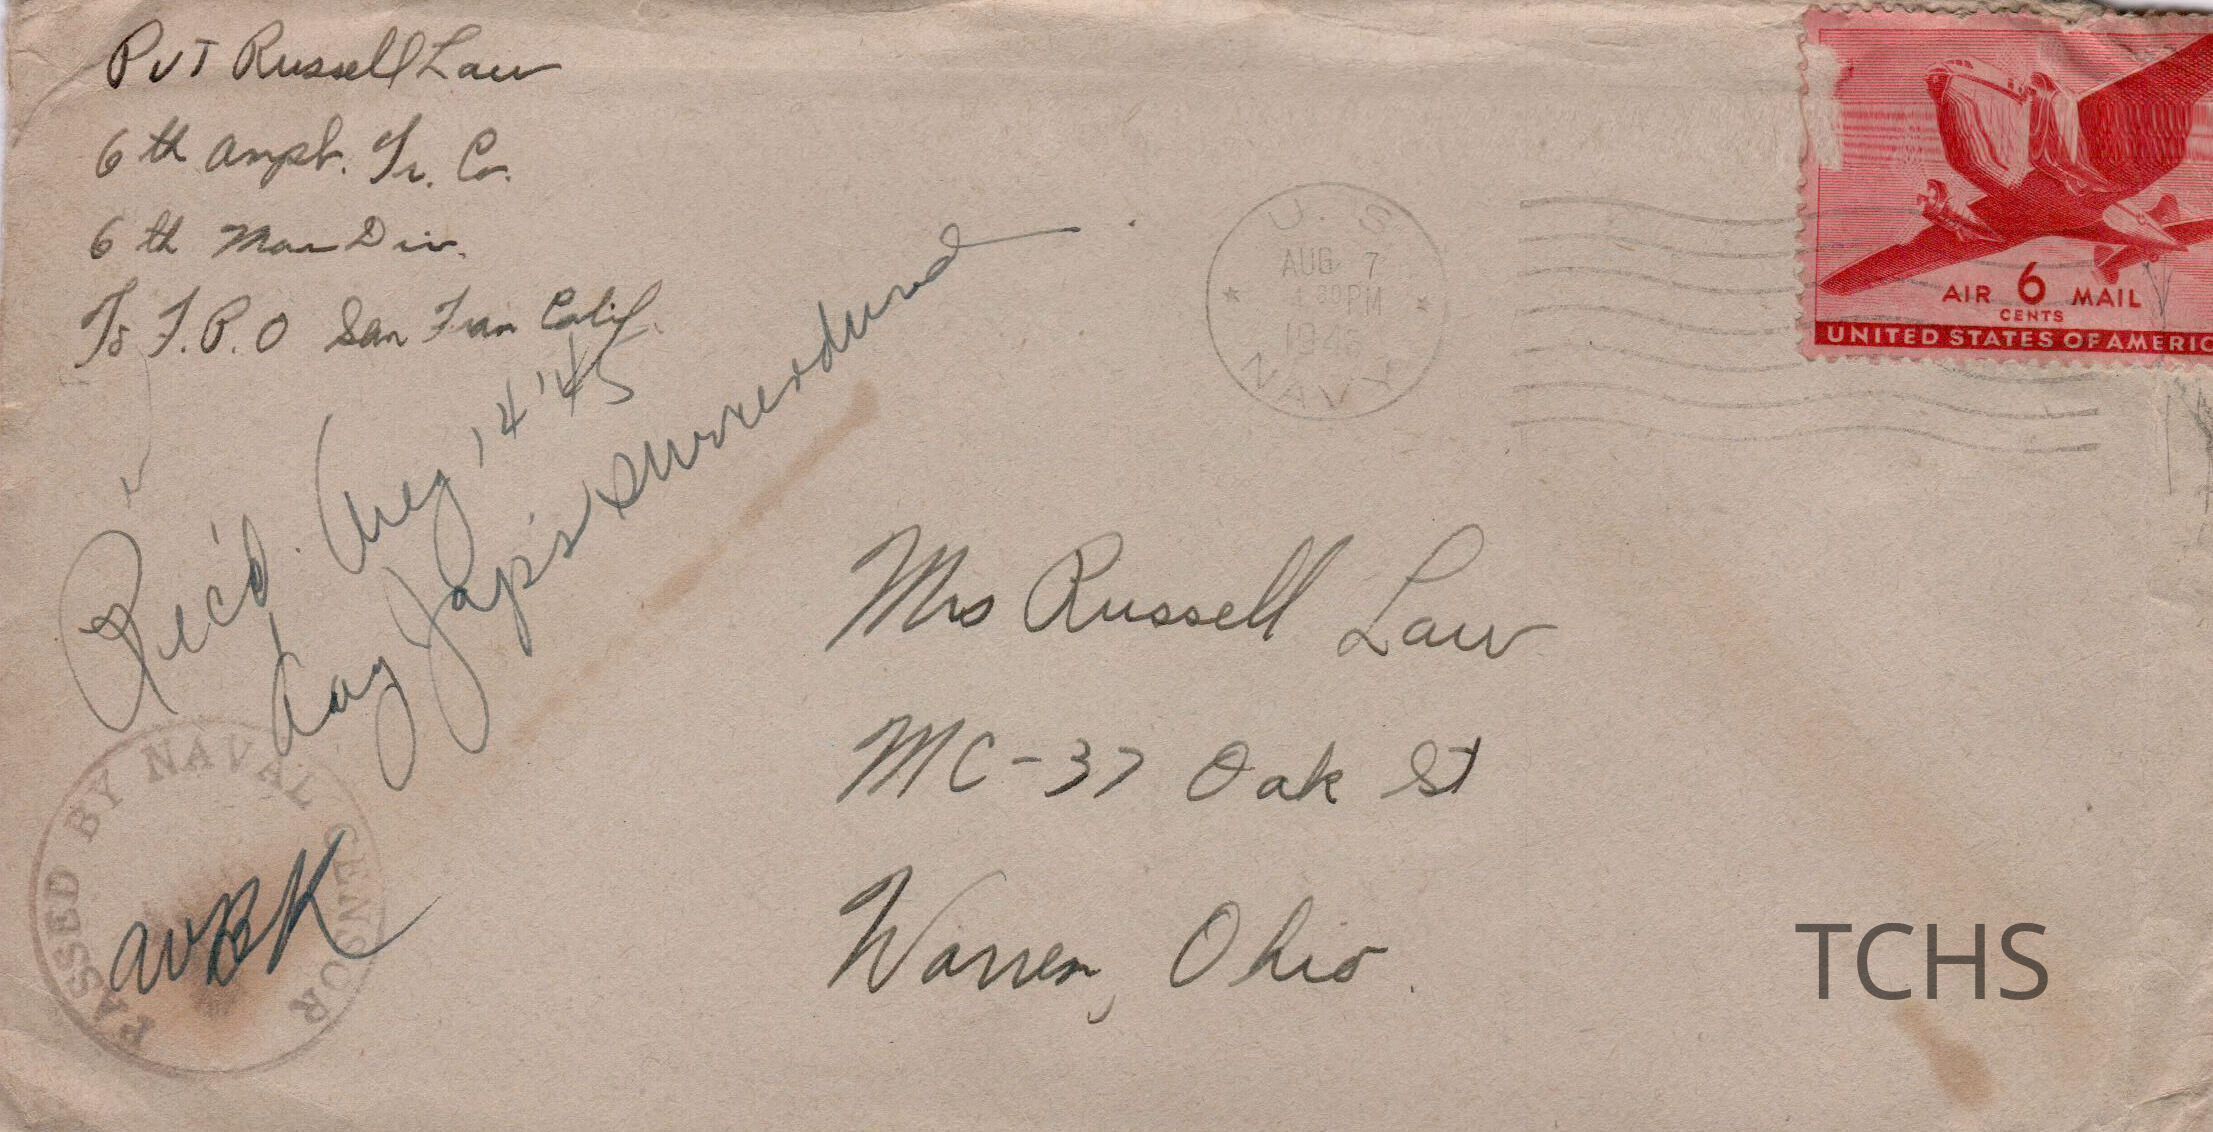 Pvt Russell Law
6th Amph. Tr. Co.
6th Mar Div.
℅ F.P.O San Fran Calif.
Rec'd. Aug 14 '45
day Jap's surrendured
U. S.
AUG 7
4 30 PM
1945
NAVY
AIR 6 MAIL
CENTS
UNITED STATES OF AMERIC
Mrs Russell Law
MC-37 Oak St
Warren, Ohio.
PASSED BY NAVAL CENSOR
WBK
TCHS